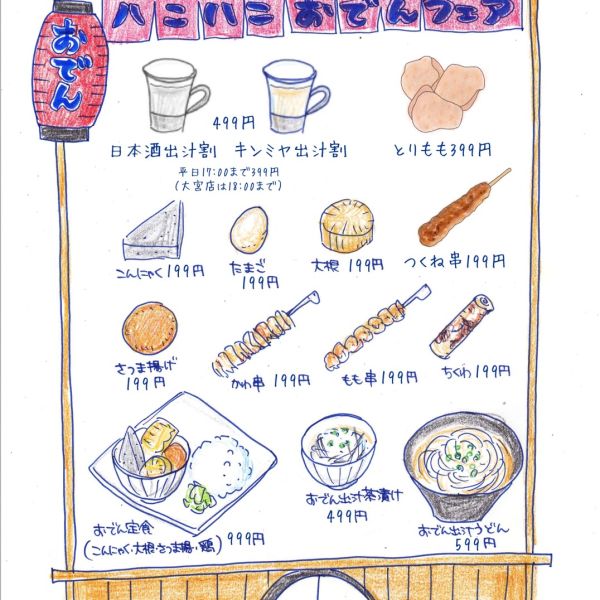 ハニハニおでんフェア
おでん
499円
日本酒出汁割 キンミヤ出汁割
平日17:00まで399円
(大宮店は18:00まで)
とりもも399円
こんにゃく199円
たまご
199円
大根 199円
つくね串199円
さつま揚げ
199円
かわ串 199円
もも串199円
ちくわ199円
おでん定食
(こんにゃく・大根・さつま揚・鶏)999円
おでん出汁茶漬け
499円
おでん出汁うどん
599円